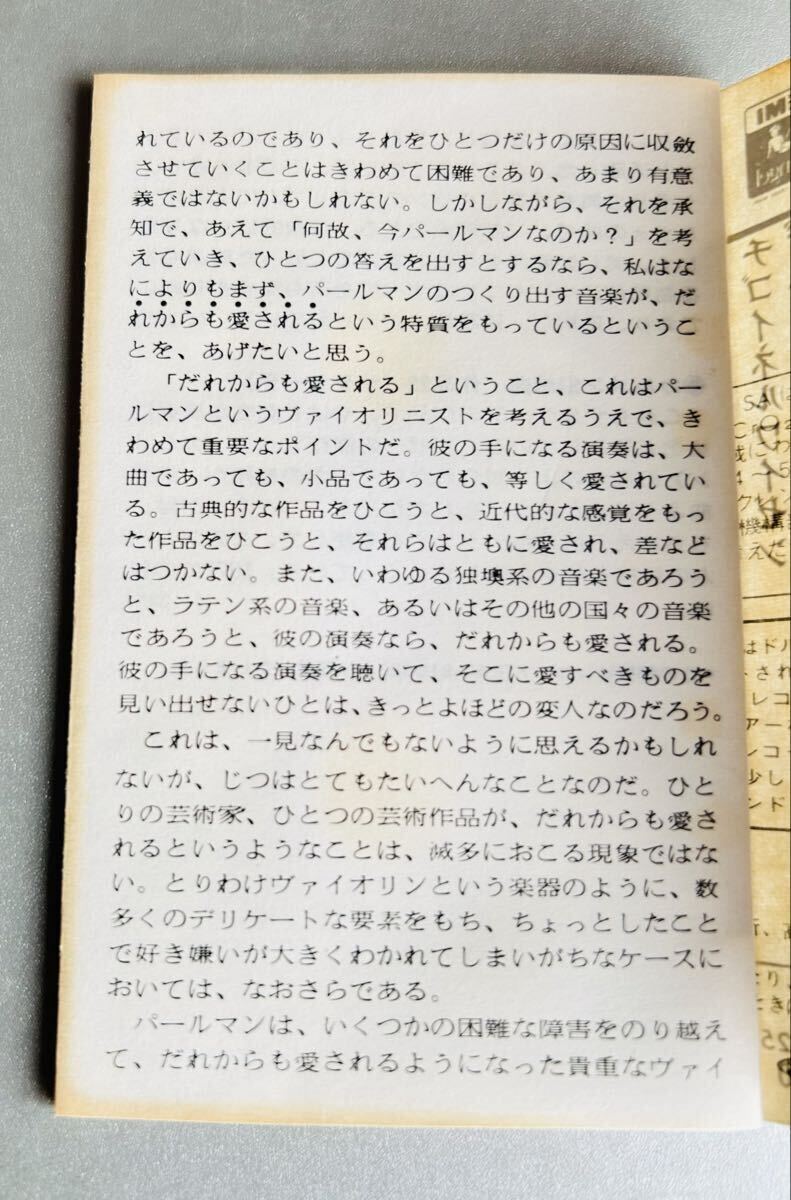 れているのであり、それをひとつだけの原因に収斂
させていくことはきわめて困難であり、あまり有意
義ではないかもしれない。しかしながら、それを承
知で、あえて「何故、今パールマンなのか？」を考
えていき、ひとつの答えを出すとするなら、私はな
によりもまず、パールマンのつくり出す音楽が、だ
れからも愛されるという特質をもっているというこ
とを、あげたいと思う。
「だれからも愛される」ということ、これはパー
ルマンというヴァイオリニストを考えるうえで、き
わめて重要なポイントだ。彼の手になる演奏は、大
曲であっても、小品であっても、等しく愛されてい
る。古典的な作品をひこうと、近代的な感覚をもっ
た作品をひこうと、それらはともに愛され、差など
はつかない。また、いわゆる独墺系の音楽であろう
と、ラテン系の音楽、あるいはその他の国々の音楽
であろうと、彼の演奏なら、だれからも愛される。
彼の手になる演奏を聴いて、そこに愛すべきものを
見い出せないひとは、きっとよほどの変人なのだろう。
これは、一見なんでもないように思えるかもしれ
ないが、じつはとてもたいへんなことなのだ。ひと
りの芸術家、ひとつの芸術作品が、だれからも愛さ
れるというようなことは、滅多におこる現象ではな
い。とりわけヴァイオリンという楽器のように、数
多くのデリケートな要素をもち、ちょっとしたこと
で好き嫌いが大きくわかれてしまいがちなケースに
おいては、なおさらである。
パールマンは、いくつかの困難な障害をのり越え
て、だれからも愛されるようになった貴重なヴァイ